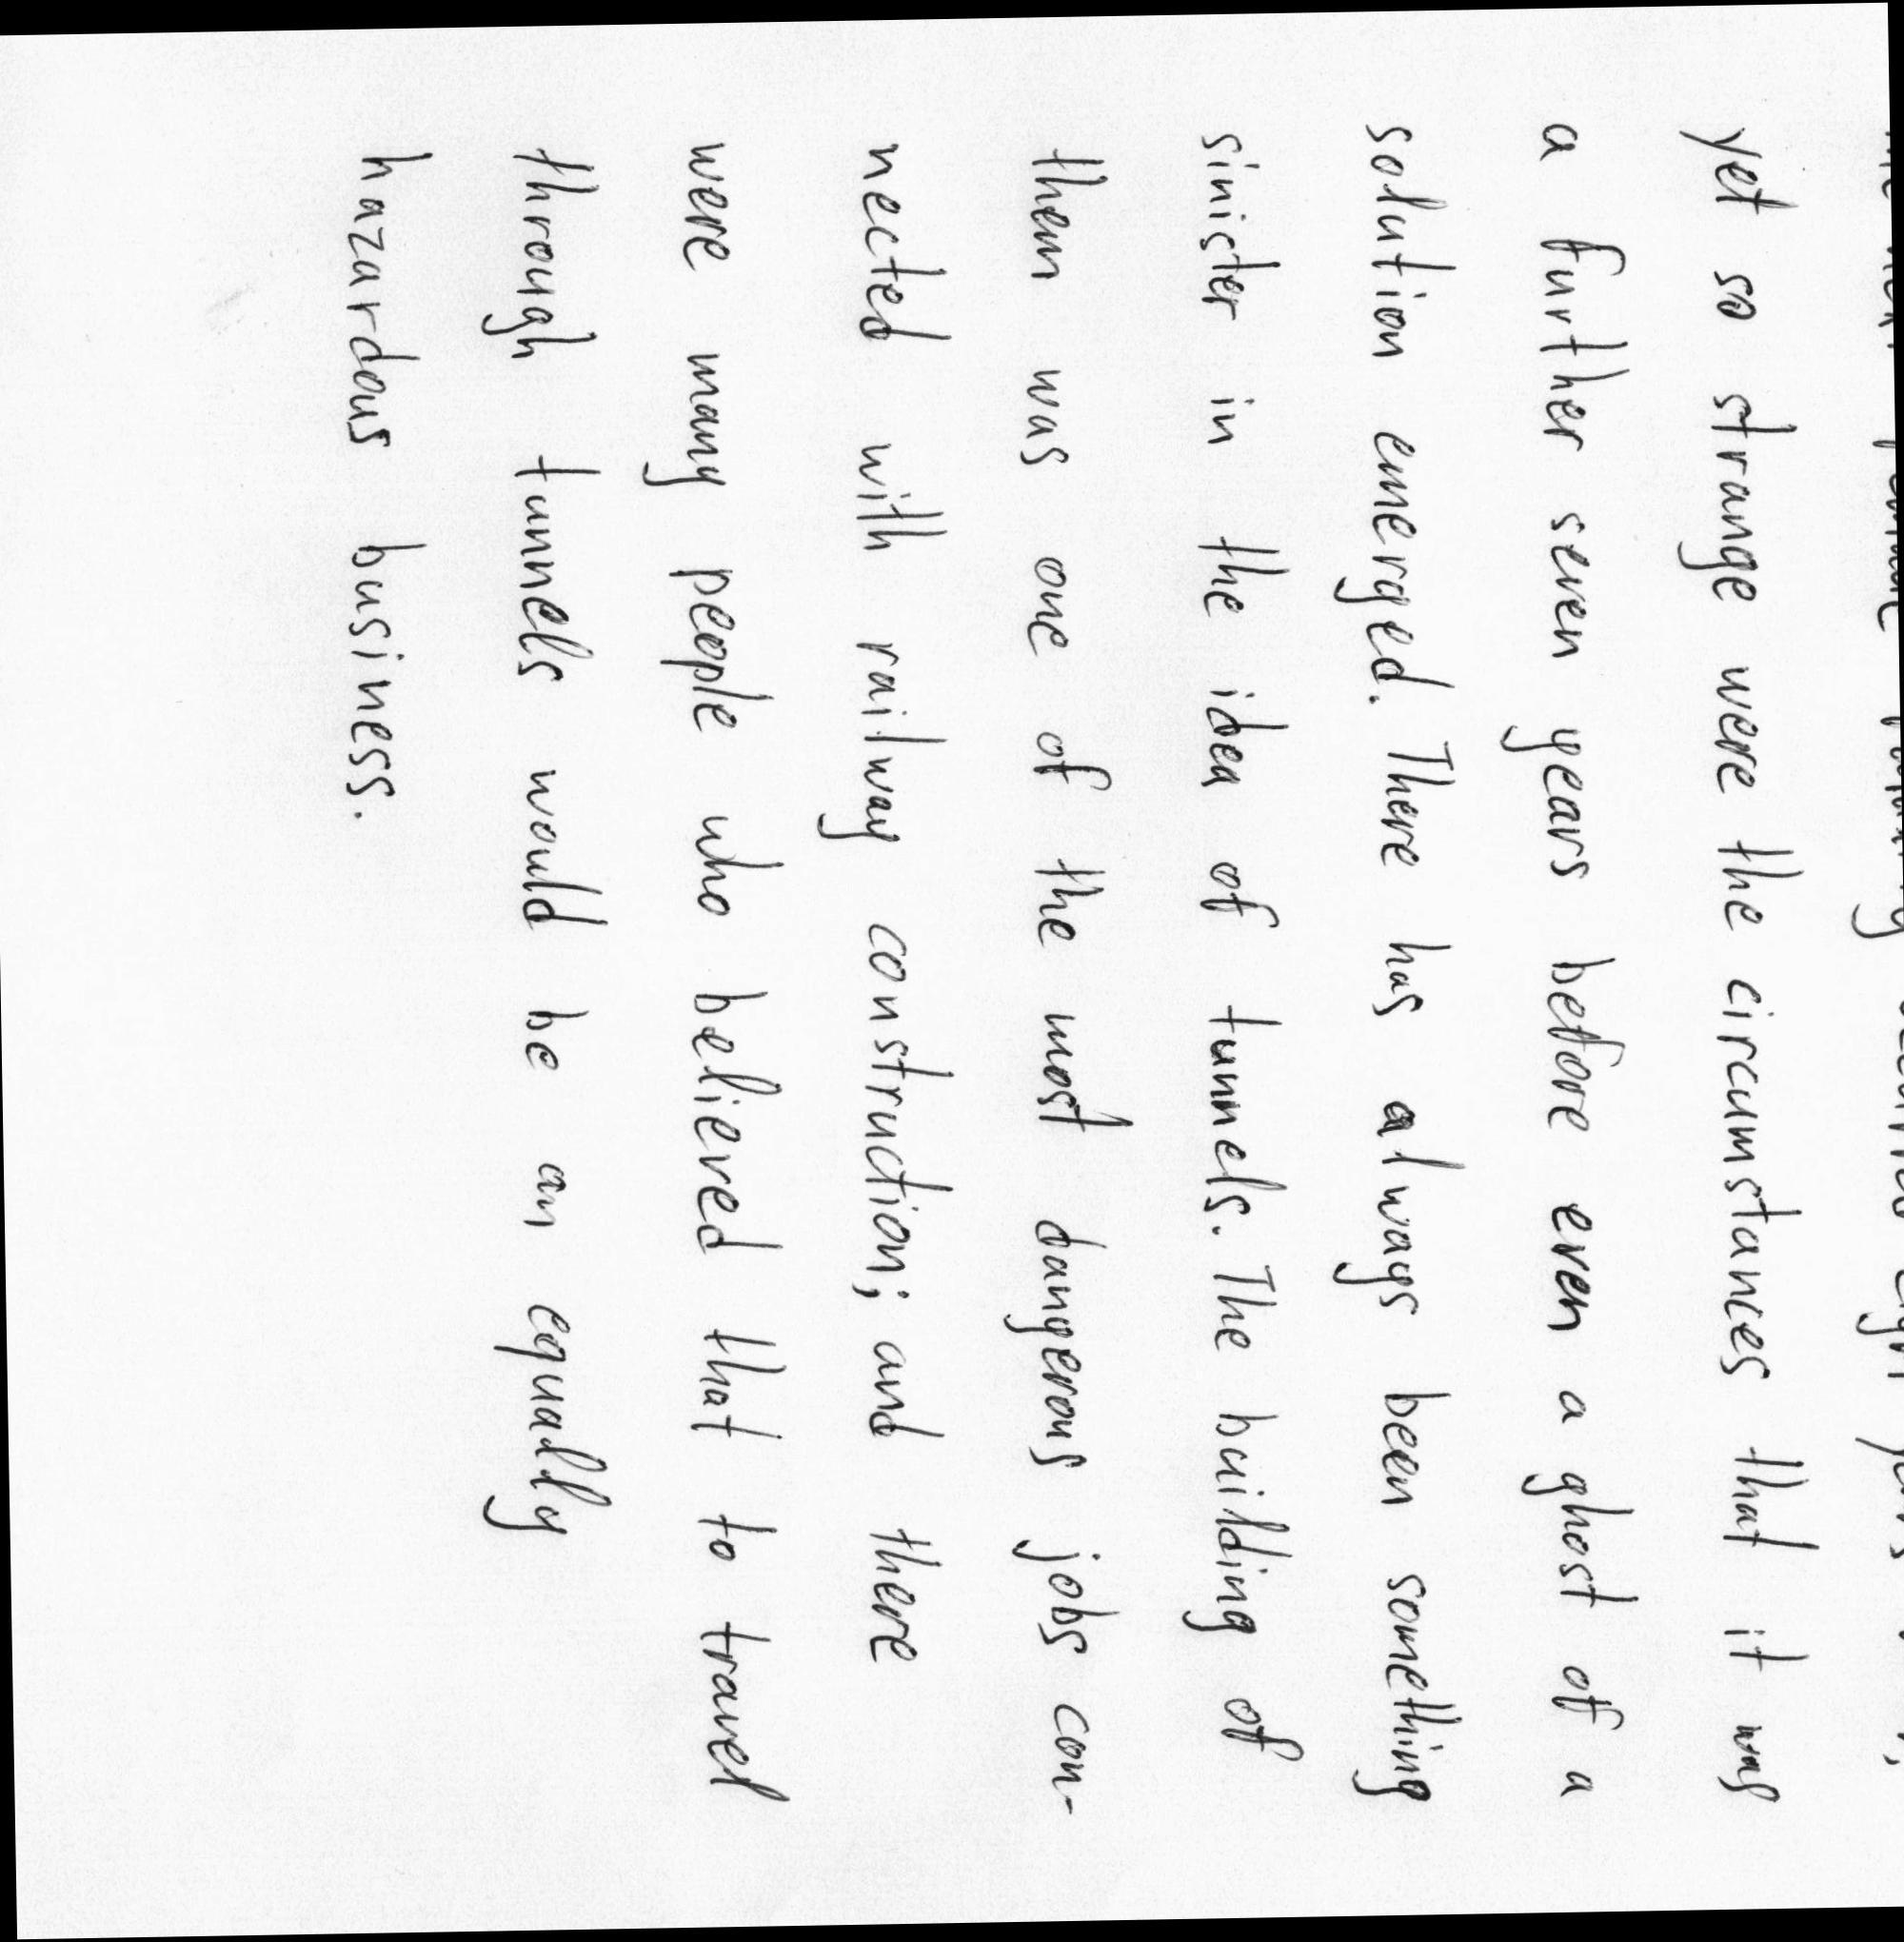 yet so strange were the circumstances that it was
a further seven years before even a ghost of a
solution emerged. There has always been something
sinister in the idea of tunnels. The building of
them was one of the most dangerous jobs con-
nected with railway construction; and there
were many people who believed that to travel
through tunnels would be an equally
hazardous business.